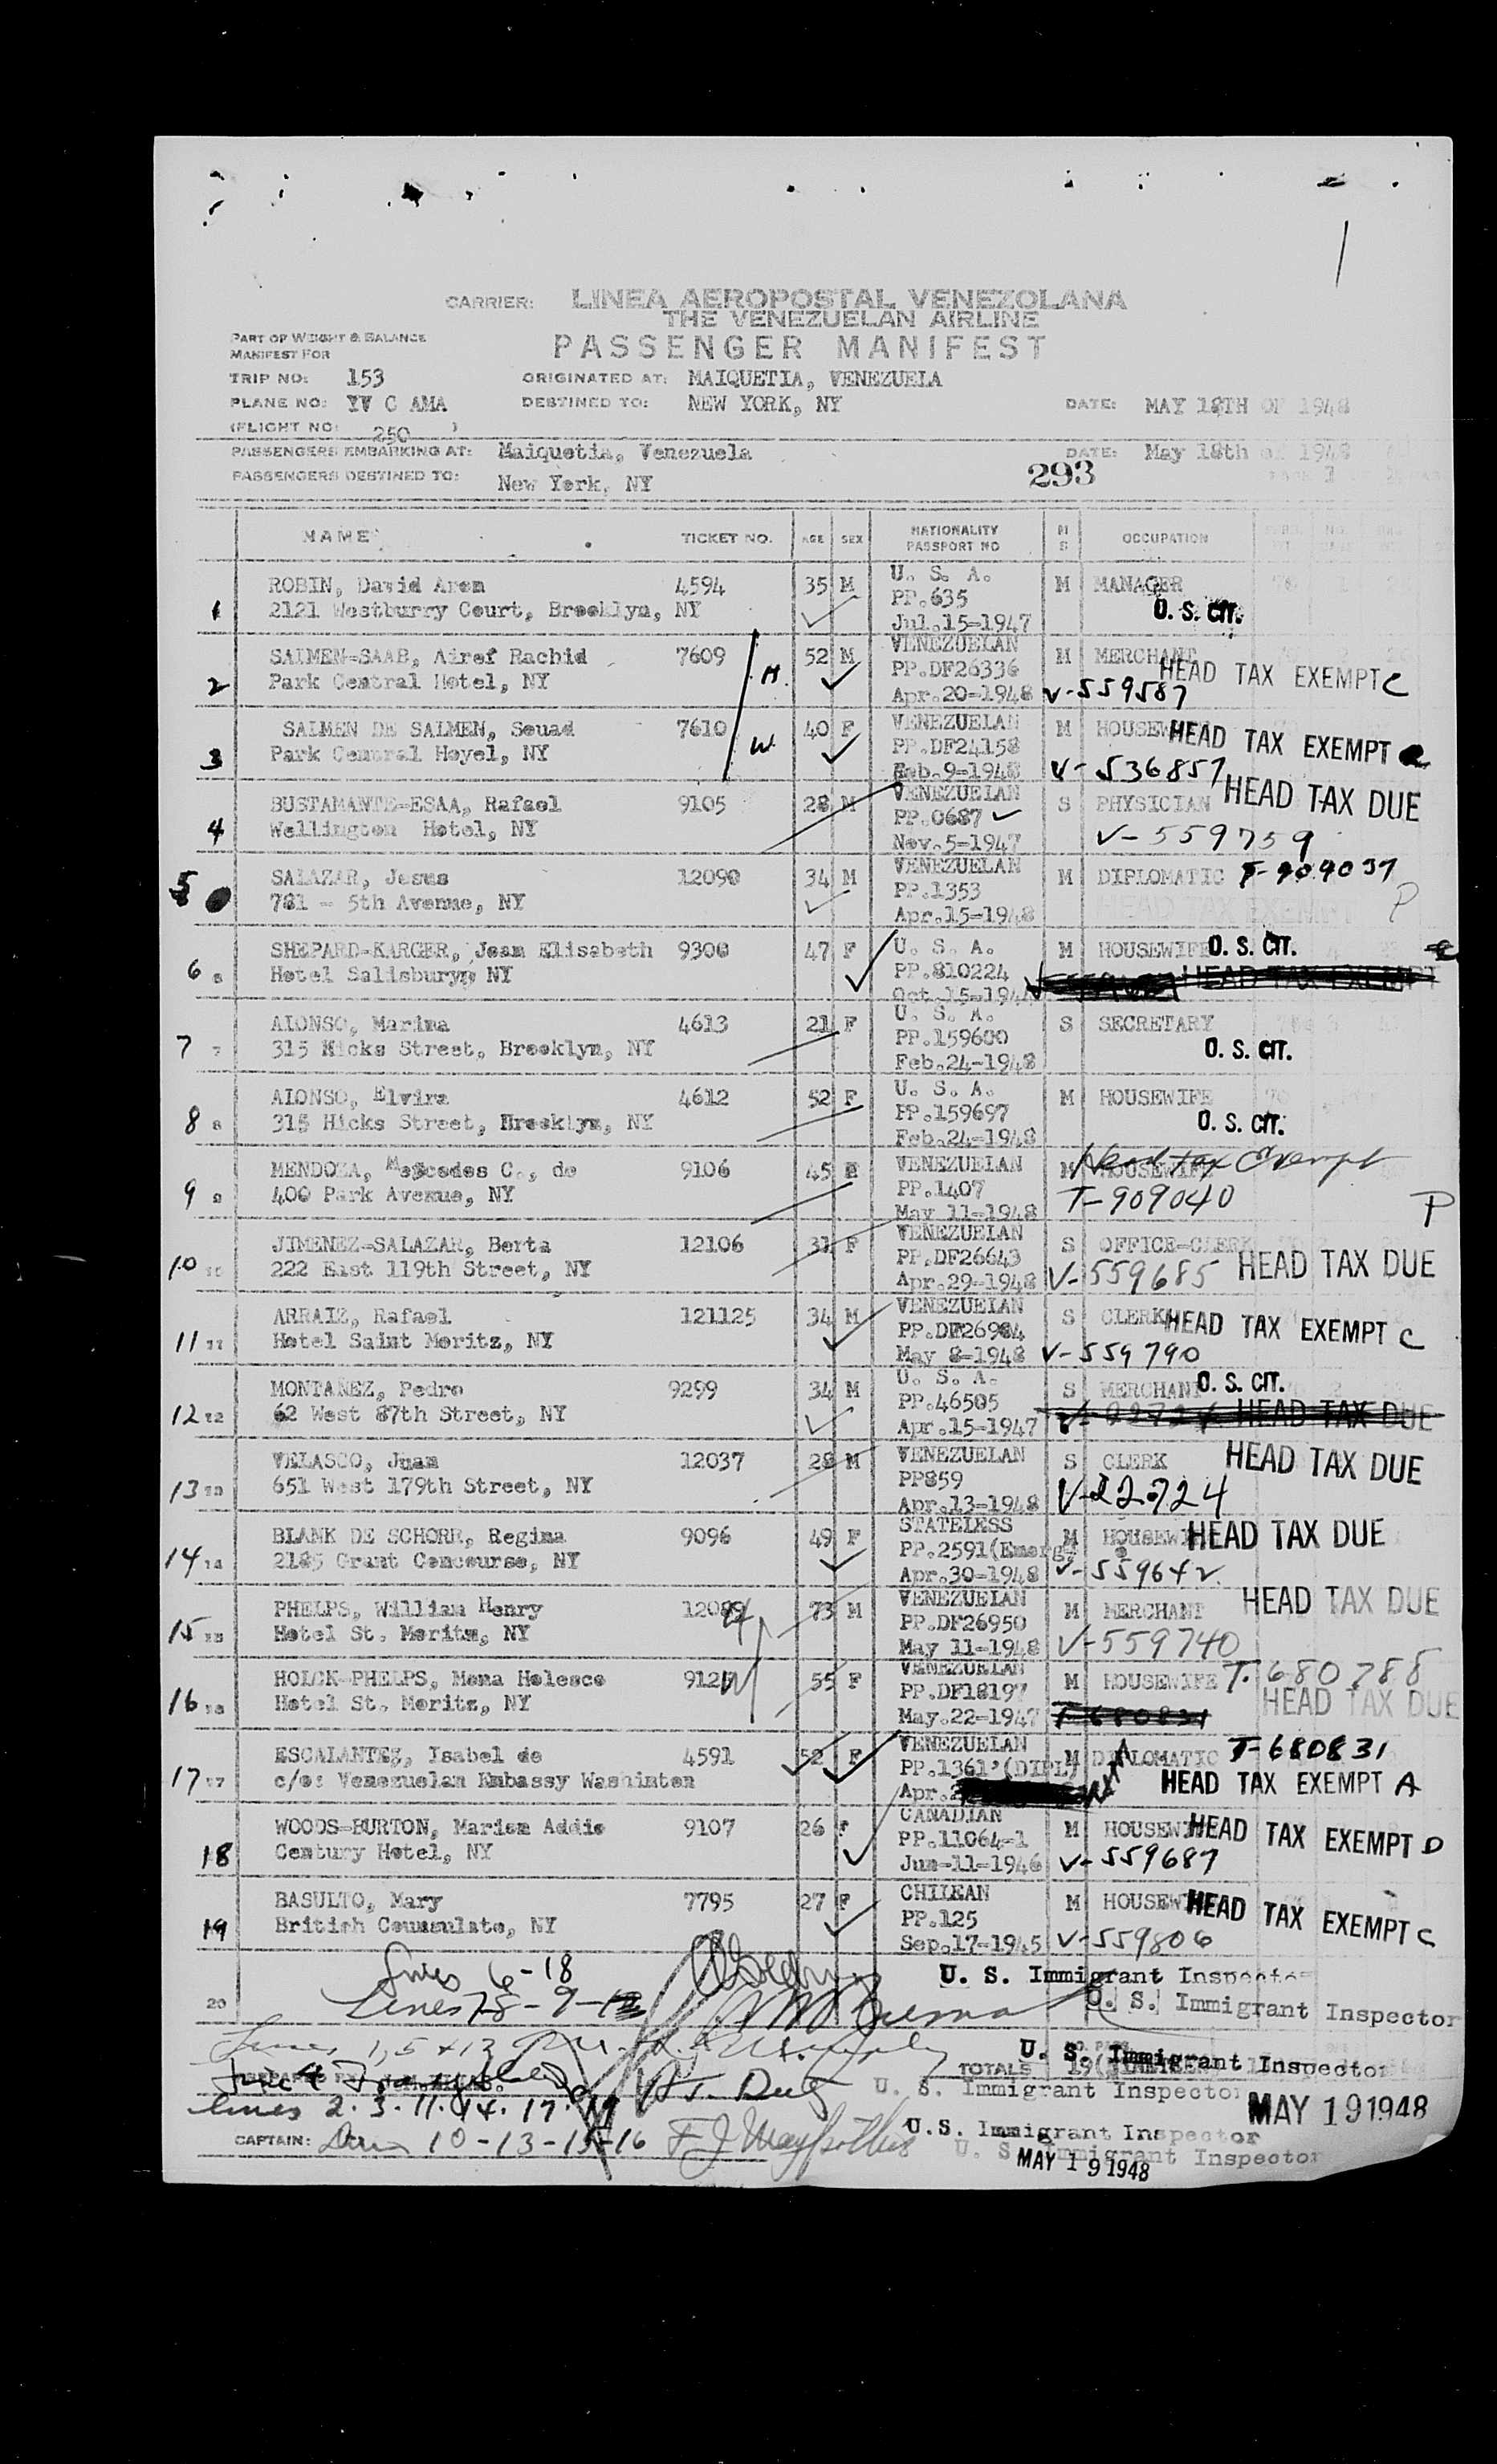 CARRIER: LINEA AEROPOSTAL VENEZOLANA
THE VENEZUELAN AIRLINE
PART OF WEIGHT & BALANCE
MANIFEST FOR
PASSENGER MANIFEST
TRIP NO: 153 ORIGINATED AT: MAIQUETIA, VENEZUELA
PLANE NO: YV C AMA DESTINED TO: NEW YORK, NY DATE: MAY 18TH OF 1948
(FLIGHT NO: 250 )
PASSENGERS EMBARKING AT: Maiquetia, Venezuela DATE: May 18th of 1948
PASSENGERS DESTINED TO: New York, NY 293
NAME TICKET NO. AGE SEX NATIONALITY PASSPORT NO M S OCCUPATION
1 ROBIN, David Aron 4594 35 M U. S. A. M MANAGER
2121 Westburry Court, Brooklyn, NY PP.635 U. S. CIT.
Jul.15-1947
2 SALMEN-SAAB, Airef Rachid 7609 H. 52 M VENEZUELAN M MERCHANT
Park Central Hotel, NY PP.DF26336 HEAD TAX EXEMPT C
Apr.20-1948 V-559587
3 SALMEN DE SALMEN, Souad 7610 W. 40 F VENEZUELAN M HOUSEW HEAD TAX EXEMPT
Park Central Hoyel, NY PP.DF24158
Feb.9-1948 V-536857
4 BUSTAMANTE-ESAA, Rafael 9105 28 M VENEZUELAN S PHYSICIAN HEAD TAX DUE
Wellington Hotel, NY PP.0687
Nov.5-1947 V-559759
5 SALAZAR, Jesus 12090 34 M VENEZUELAN M DIPLOMATIC T-909037
781 - 5th Avenue, NY PP.1353 HEAD TAX EXEMPT P
Apr.15-1948
6 SHEPARD-KARGER, Jean Elisabeth 9300 47 F U. S. A. M HOUSEWIFE U. S. CIT.
Hotel Salisbury, NY PP.810224 HEAD TAX EXEMPT
7 ALONSO, Marina 4613 21 F U. S. A. S SECRETARY
315 Hicks Street, Brooklyn, NY PP.159600 U. S. CIT.
Feb.24-1948
8 ALONSO, Elvira 4612 52 F U. S. A. M HOUSEWIFE
315 Hicks Street, Brooklyn, NY PP.159697 U. S. CIT.
Feb.24-1948
9 MENDOZA, Mercedes C., de 9106 45 F VENEZUELAN M HOUSEWIFE Head tax Exempt
400 Park Avenue, NY PP.1407 T-909040 P
May 11-1948
10 JIMENEZ-SALAZAR, Berta 12106 31 F VENEZUELAN S OFFICE-CLERK
222 East 119th Street, NY PP.DF26643 HEAD TAX DUE
Apr.29-1948 V-559685
11 ARRAIZ, Rafael 121125 34 M VENEZUELAN S CLERK HEAD TAX EXEMPT C
Hotel Saint Moritz, NY PP.DF26984
May 8-1948 V-559790
12 MONTAÑEZ, Pedro 9299 34 M U. S. A. S MERCHANT U. S. CIT.
62 West 87th Street, NY PP.46505 HEAD TAX DUE
Apr.15-1947
13 VELASCO, Juan 12037 28 M VENEZUELAN S CLERK HEAD TAX DUE
651 West 179th Street, NY PP859
Apr.13-1948 V-22724
14 BLANK DE SCHORR, Regina 9096 49 F STATELESS M HOUSEWI HEAD TAX DUE
2185 Grant Concourse, NY PP.2591(Emerg.
Apr.30-1948 V-559642
15 PHELPS, William Henry 12089 H 73 M VENEZUELAN M MERCHANT HEAD TAX DUE
Hotel St. Moritz, NY PP.DF26950
May 11-1948 V-559740
16 HOLCK-PHELPS, Mema Holesco 912 W 55 F VENEZUELAN M HOUSEWIFE T-680788
Hotel St. Moritz, NY PP.DF18197 HEAD TAX DUE
May.22-1947 T-680831
17 ESCALANTEZ, Isabel de 4591 52 F VENEZUELAN M DIPLOMATIC T-680831
c/o: Venezuelan Embassy Washinton PP.1361 (DIPL) HEAD TAX EXEMPT A
Apr.2
18 WOODS-BURTON, Mariem Addie 9107 26 F CANADIAN M HOUSEWI HEAD TAX EXEMPT D
Century Hotel, NY PP.11064-1
Jun-11-1946 V-559687
19 BASULTO, Mary 7795 27 F CHILEAN M HOUSEW HEAD TAX EXEMPT C
British Counsulate, NY PP.125
Sep.17-1945 V-559806
Lines 6-18 U. S. Immigrant Inspector
20 Lines 7-8-9- U. S. Immigrant Inspector
Lines 1, 5 + 12 U. S. Immigrant Inspector
TOTALS 19
U. S. Immigrant Inspector
lines 2. 3. 11. 14. 17. 19 MAY 19 1948
U.S. Immigrant Inspector
CAPTAIN: 10-13-15-16 U. S. Immigrant Inspector
MAY 19 1948